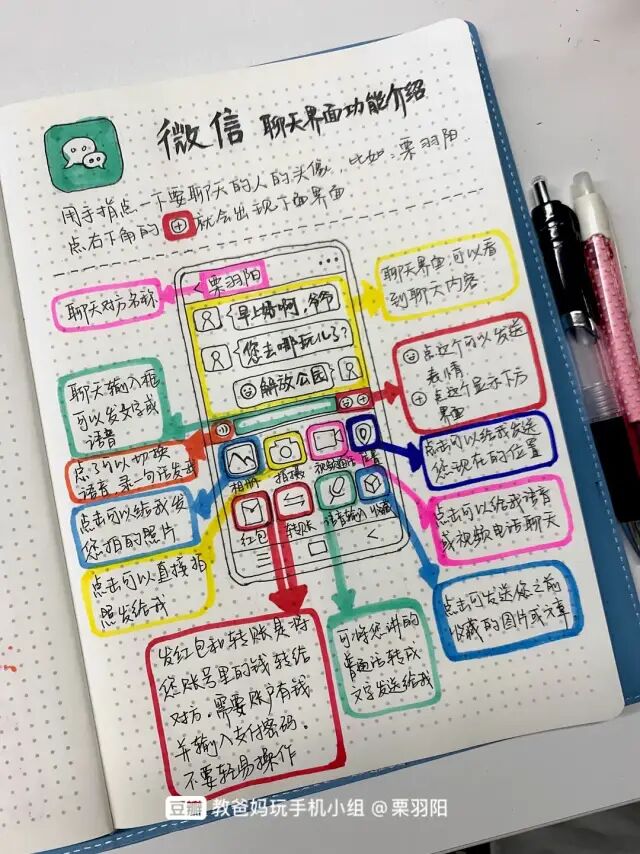 微信 聊天界面功能介绍
用手指点一下要聊天的人的头像，比如：栗羽阳
点右下角的⊕就会出现下面界面
聊天对方名称
栗羽阳
聊天界面，可以看
到聊天内容
早上好啊，爷爷
您去哪玩儿了？
解放公园
聊天输入框
可以发文字或
语音
点这个可以发送
表情
点这个显示下方
界面
点了可以切换
语音，录一句话发我
点击可以给我发送
您现在的位置
相册
拍摄
视频通话
位置
点击可以给我发
您拍的照片
点击可以给我语音
或视频电话聊天
红包
转账
语音输入
收藏
点击可以直接拍
照发给我
点击可发送您之前
收藏的图片或文章
发红包和转账是将
您账号里的钱转给
对方，需要账户有钱
并输入支付密码，
不要轻易操作
可将您讲的
普通话转成
文字发送给我
豆瓣 教爸妈玩手机小组 @栗羽阳